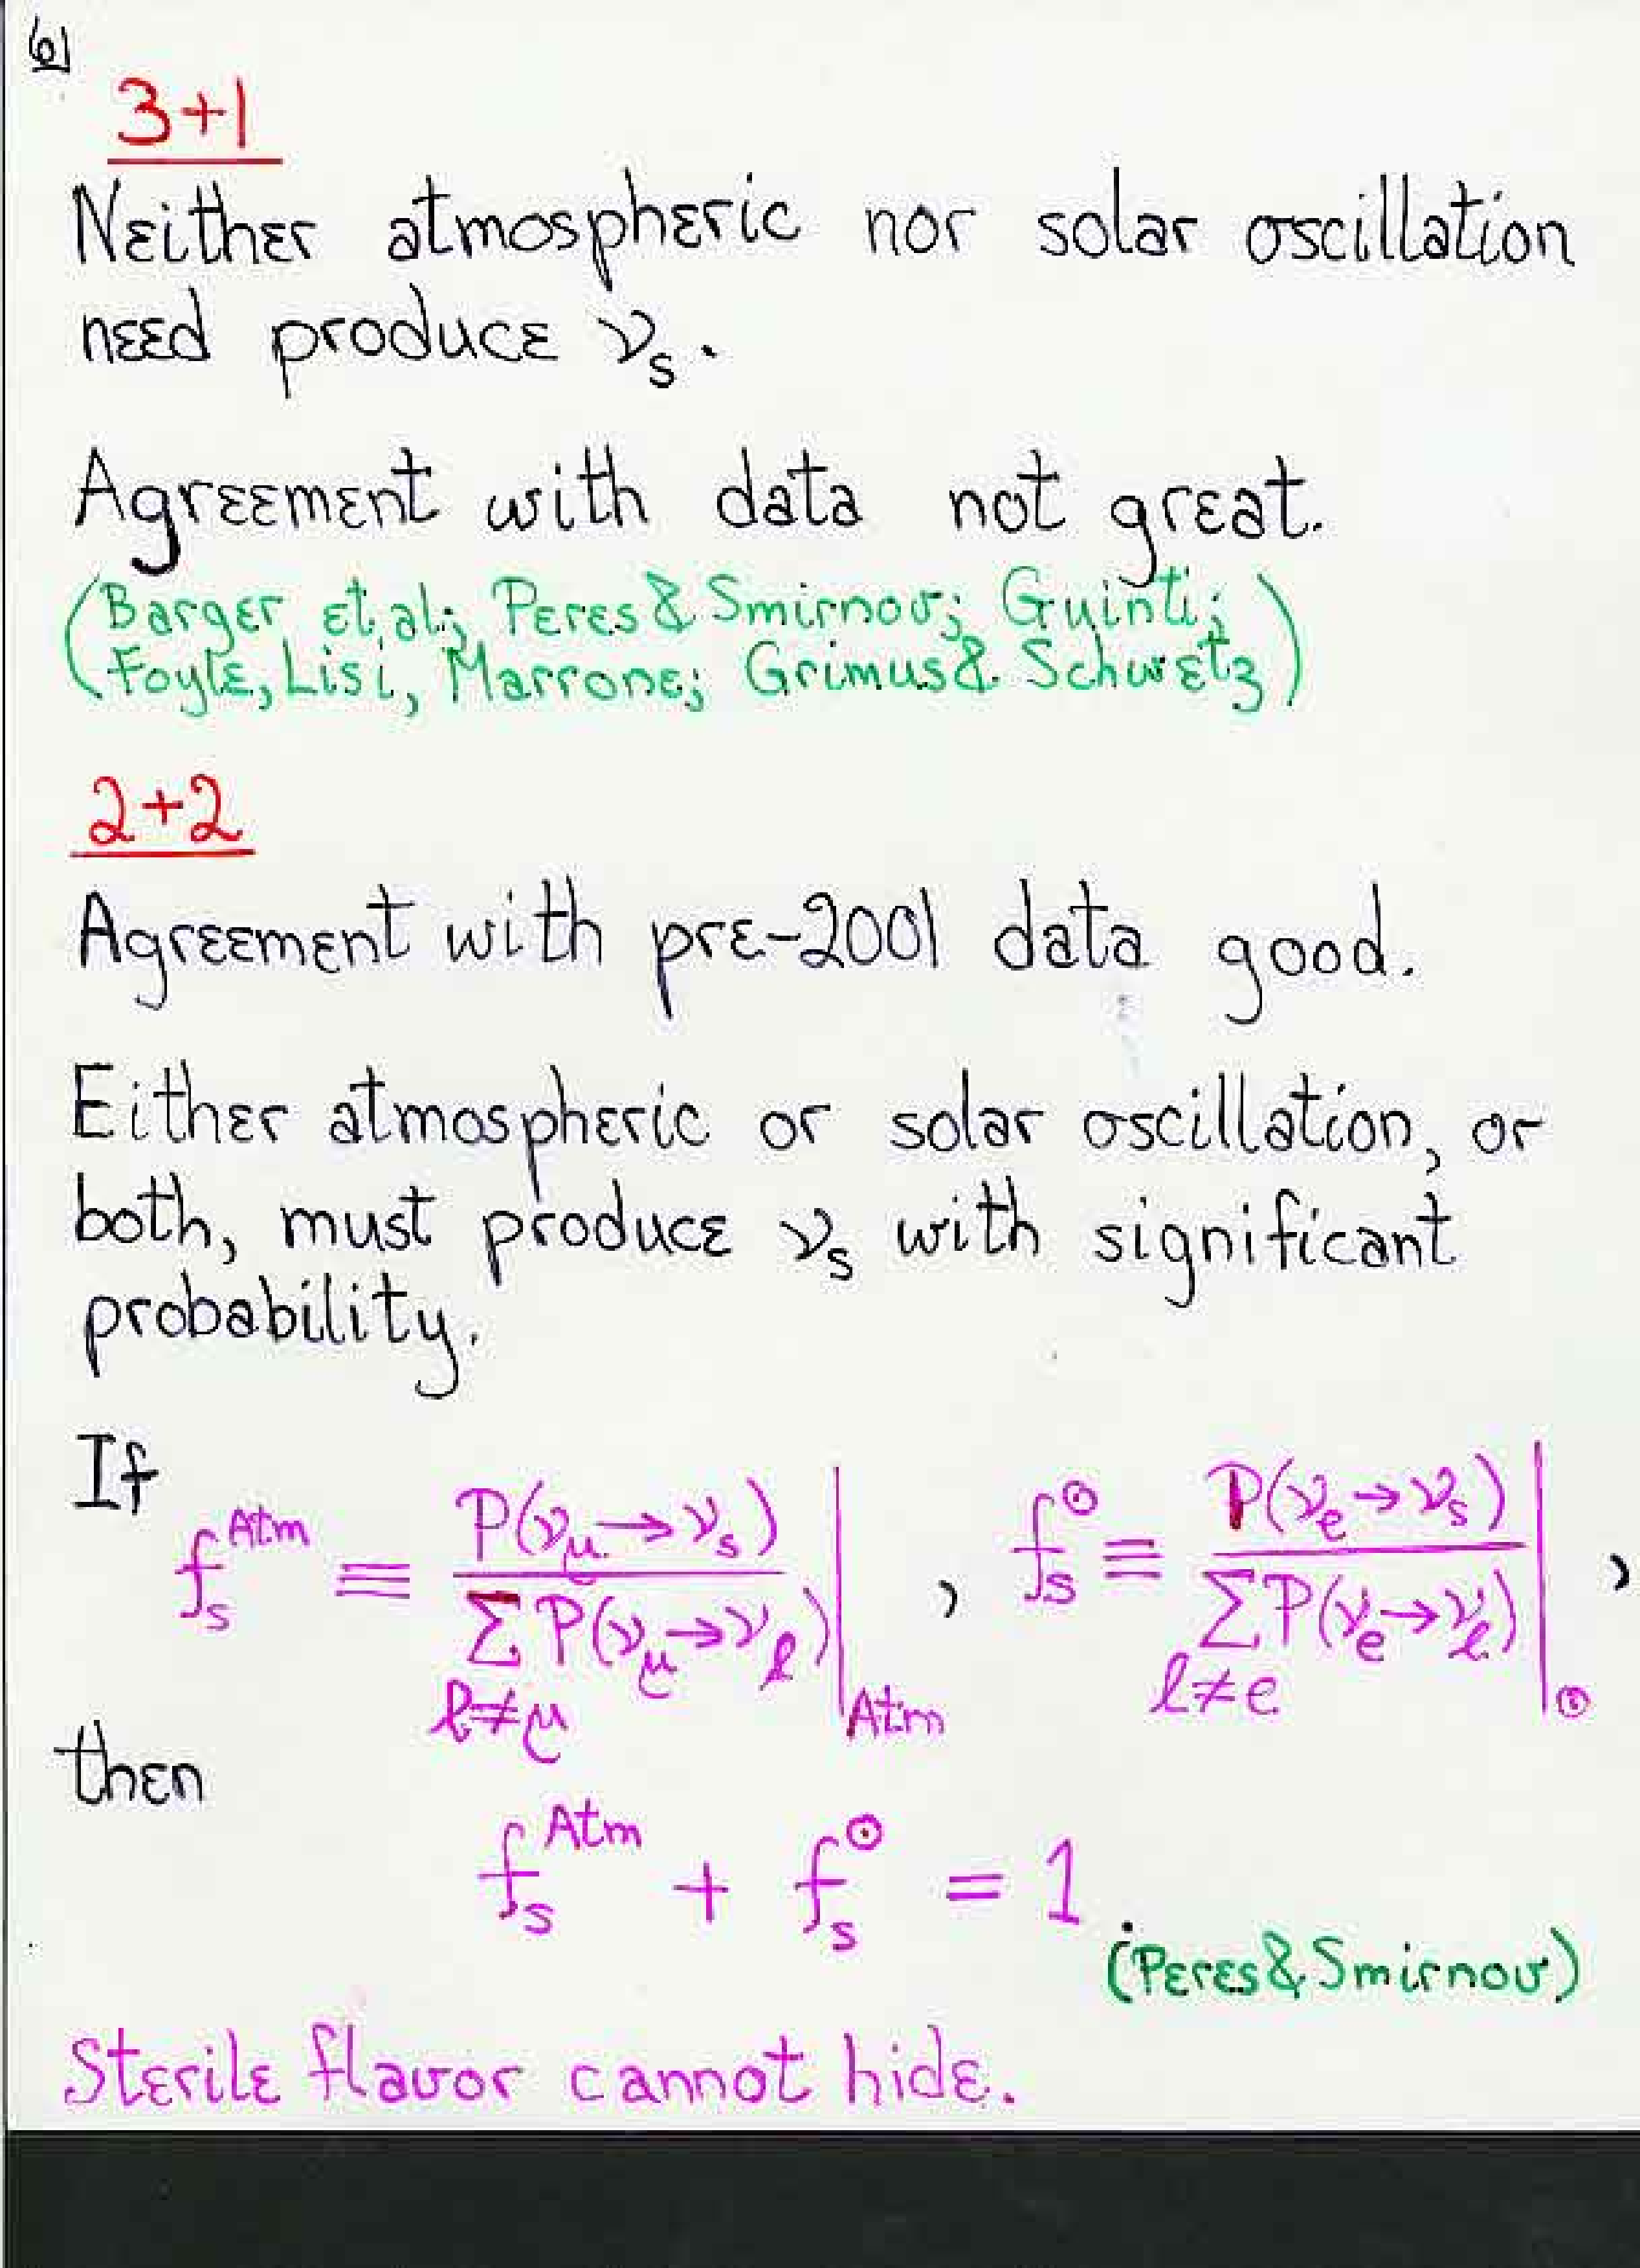 6
3+1
Neither atmospheric nor solar oscillation
need produce νₛ.
Agreement with data not great.
(Barger et.al.; Peres & Smirnov; Gyinti;
Foyle, Lisi, Marrone; Grimus & Schwetz)
2+2
Agreement with pre-2001 data good.
Either atmospheric or solar oscillation, or
both, must produce νₛ with significant
probability.
If
fₛ^Atm ≡ P(ν_μ → νₛ) / Σ_{ℓ≠μ} P(ν_μ → ν_ℓ) |_Atm , fₛ^⊙ ≡ P(ν_e → νₛ) / Σ_{ℓ≠e} P(ν_e → ν_ℓ) |_⊙ ,
then
fₛ^Atm + fₛ^⊙ = 1.
(Peres & Smirnov)
Sterile flavor cannot hide.